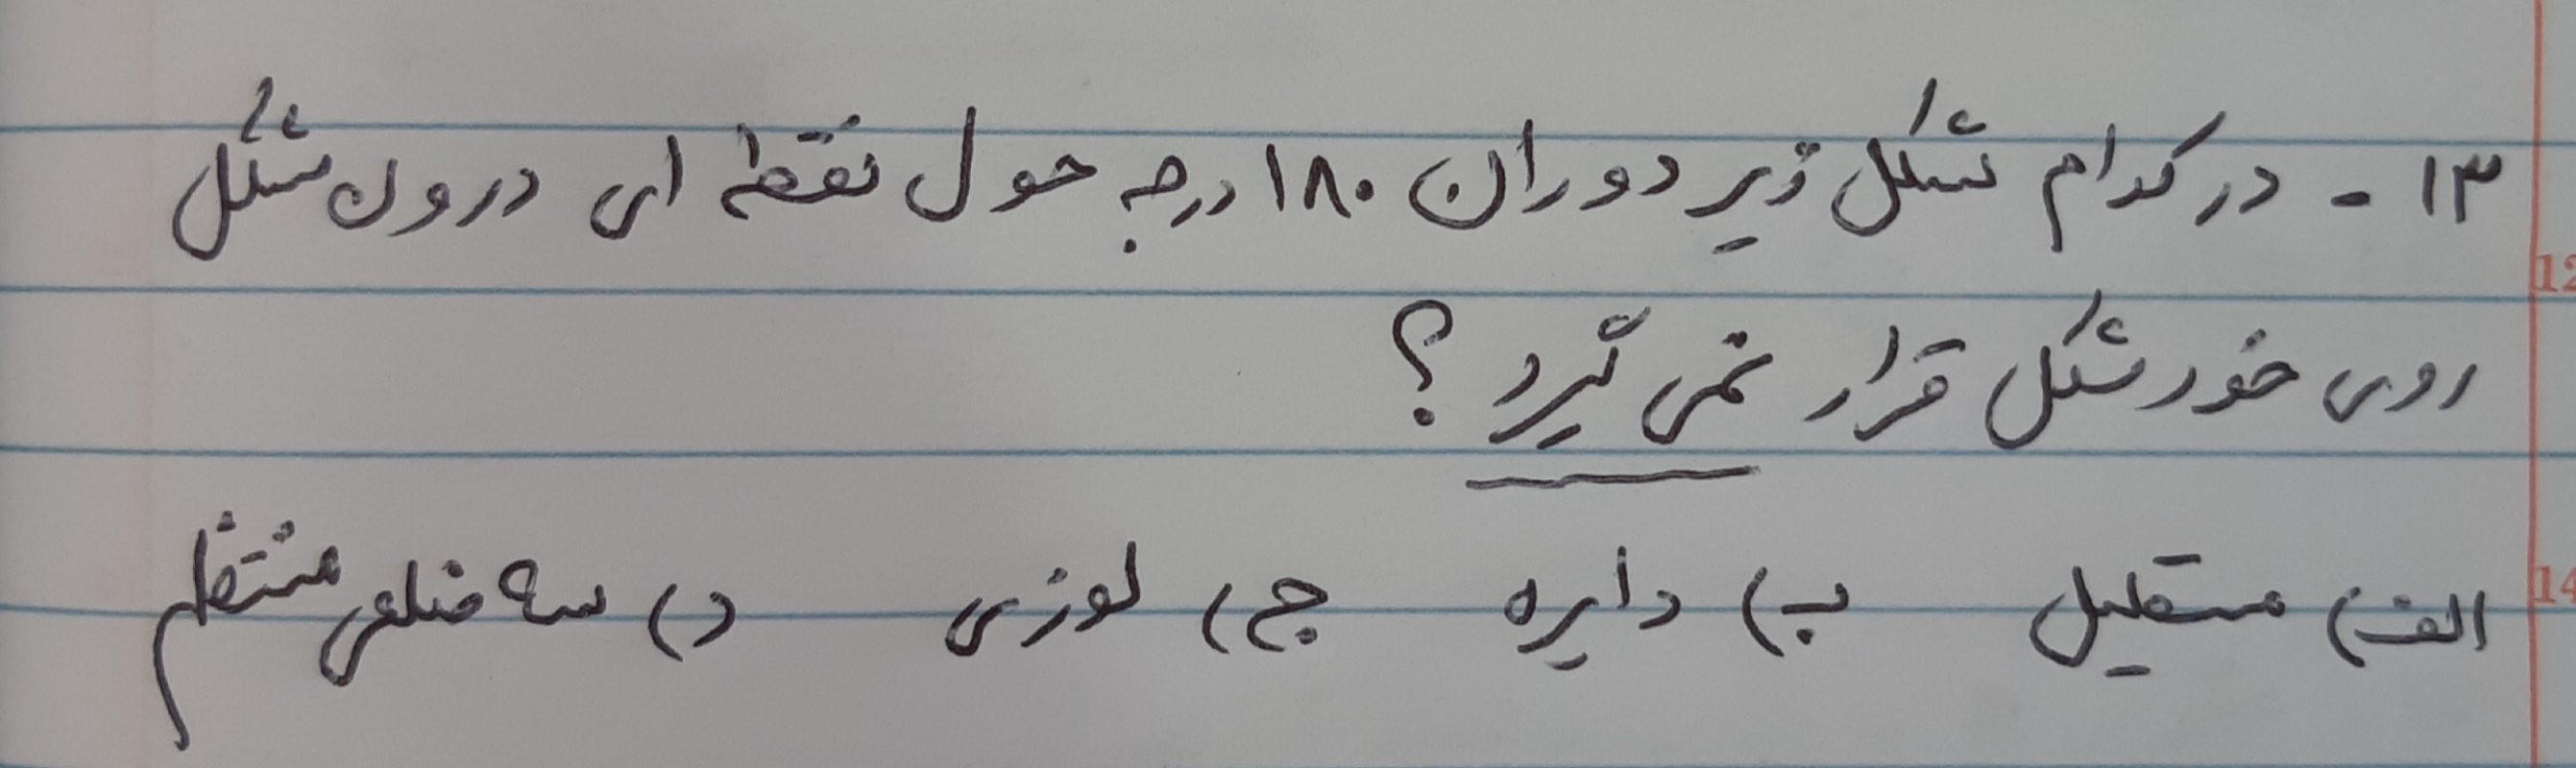 ۱۳ - در کدام شکل زیر دوران ۱۸۰ درجه حول نقطه ای درون شکل
روی خود شکل قرار نمی گیرد ؟
الف) مستطیل ب) دایره ج) لوزی د) سه ضلعی منتظم
12
14